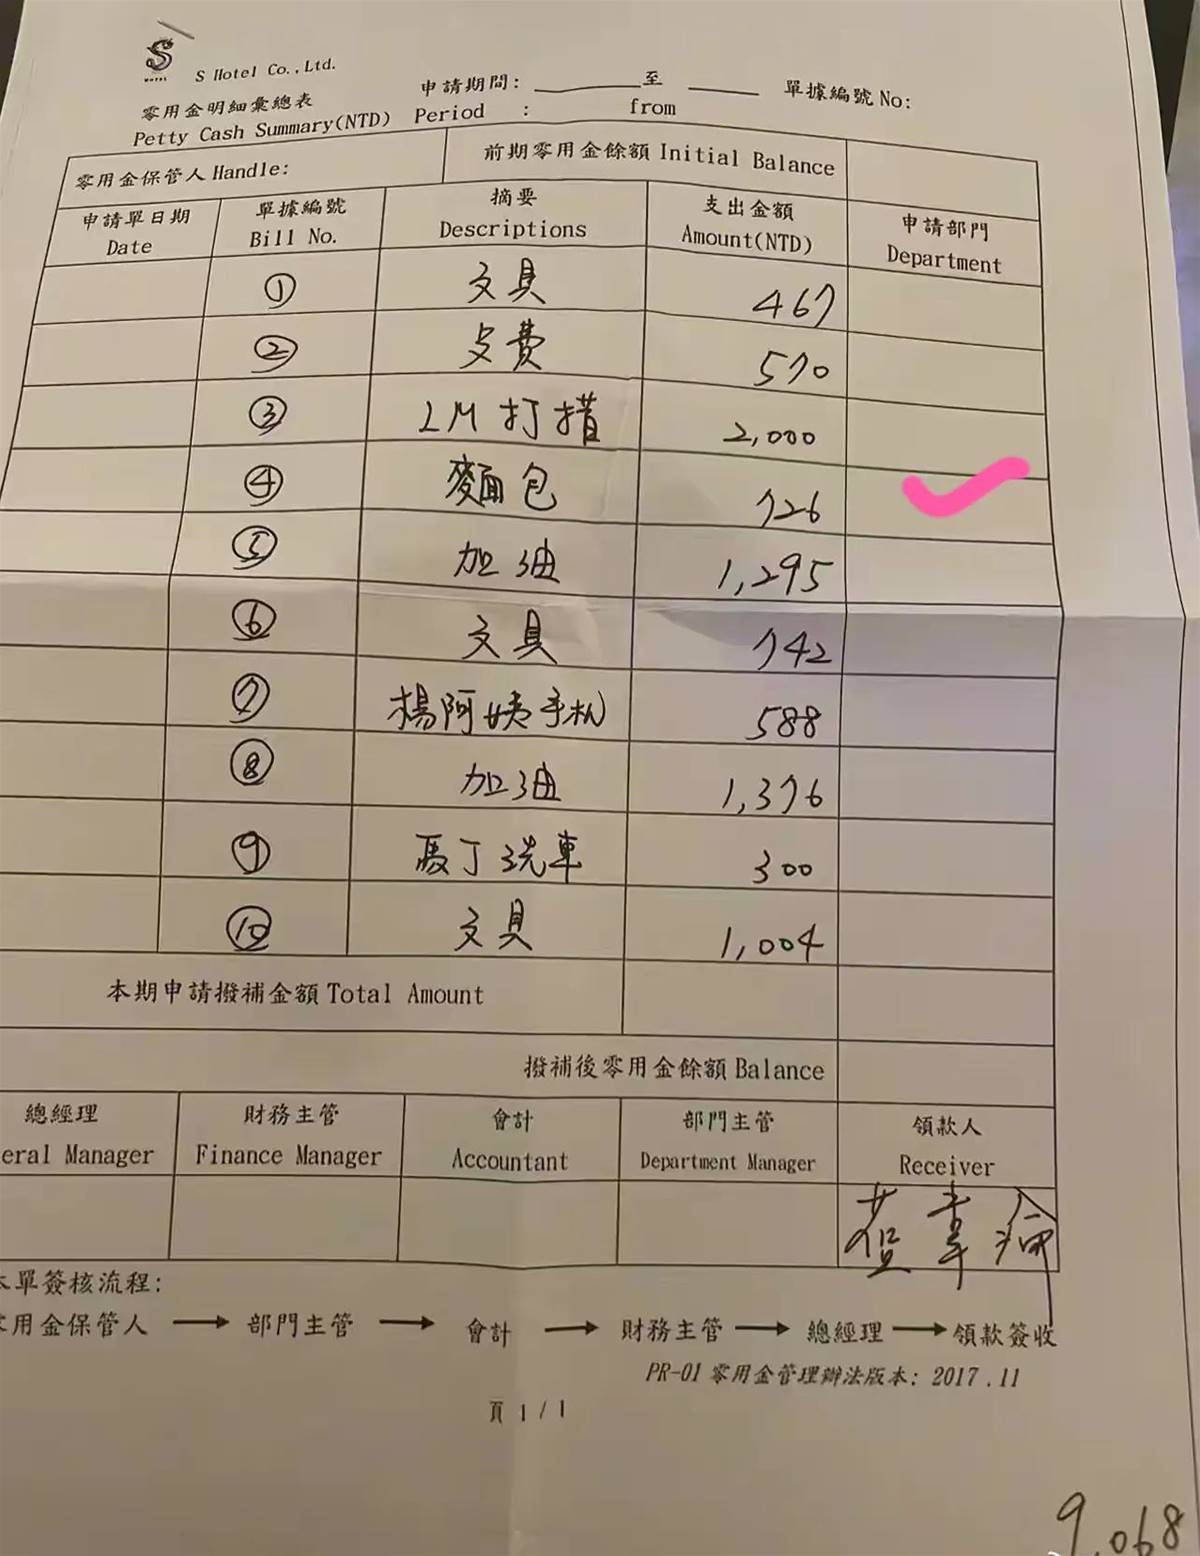 S
HOTEL
S Hotel Co.,Ltd.
零用金明細彙總表 申請期間：______至 ______ 單據編號 No:
Petty Cash Summary(NTD) Period : from
零用金保管人 Handle: 前期零用金餘額 Initial Balance
申請單日期 單據編號 摘要 支出金額 申請部門
Date Bill No. Descriptions Amount(NTD) Department
① 文具 467
② 570
③ LM 打掃 2,000
④ 麵包 726
⑤ 加油 1,295
⑥ 文具 742
⑦ 楊阿姨手机 588
⑧ 加油 1,376
⑨ 馬丁洗車 300
⑩ 文具 1,004
本期申請撥補金額 Total Amount
撥補後零用金餘額 Balance
總經理 財務主管 會計 部門主管 領款人
eral Manager Finance Manager Accountant Department Manager Receiver
本單簽核流程:
零用金保管人 → 部門主管 → 會計 → 財務主管 → 總經理 → 領款簽收
PR-01 零用金管理辦法版本: 2017.11
頁 1 / 1
9,068